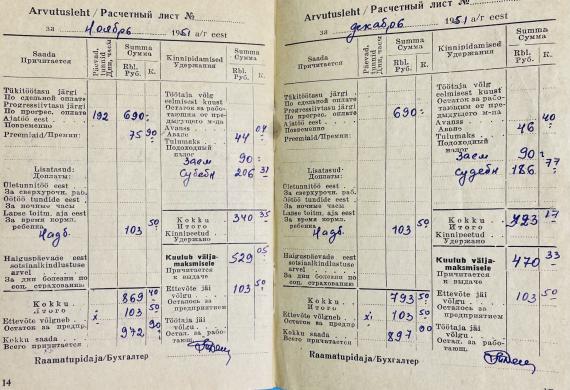 Arvutusleht / Расчетный лист №
за Ноябрь 1951 a/г eest
Saada
Причитается
Päevad, tunnid
Дни, часы
Summa
Сумма
Rbl.
Руб.
K.
Kinnipidamised
Удержания
Summa
Сумма
Rbl.
Руб.
K.
Tükitöötasu järgi
По сдельной оплате
Progressiivtasu järgi
По прогрес. оплате
Ajatöö eest
Повременно
192 690 -
Preemiaid/Премии:
75 90
Lisatasud:
Доплаты:
Ületunnitöö eest
За сверхурочн. раб.
Öötöö tundide eest
За ночные часы
Lapse toitm. aja eest
За время кормл.
ребенка
103 50
Надб.
Haiguspäevade eest
sotsiaalkindlustuse
arvel
За дни болезни по
соц. страхованию
Kokku
Итого
869 40
Ettevõte võlgneb
Остаток за предпр
103 50
Kokku saada
Всего причитается
972 90
Töötaja võlg
eelmisest kuust
Остаток за рабо-
тающим от пре-
дыдущего м-ца
Avanss
Аванс
Tulumaks
Подоходный
налог
44 04
Заем 90 -
Судебн 206 31
Kokku
Итого
Kinnipeetud
Удержано
340 35
Kuulub välja-
maksmisele
Причитается
к выдаче
529 05
Ettevõte jäi
võlgu
Осталось за
предприятием
103 50
Töötaja jäi
võlgu
Остал. за рабо-
тающ.
Raamatupidaja/Бухгалтер
14
Arvutusleht / Расчетный лист №
за декабрь 1951 a/г eest
Saada
Причитается
Päevad, tunnid
Дни, часы
Summa
Сумма
Rbl.
Руб.
K.
Kinnipidamised
Удержания
Summa
Сумма
Rbl.
Руб.
K.
Tükitöötasu järgi
По сдельной оплате
Progressiivtasu järgi
По прогрес. оплате
Ajatöö eest
Повременно
690 -
Preemiaid/Премии:
Lisatasud:
Доплаты:
Ületunnitöö eest
За сверхурочн. раб.
Öötöö tundide eest
За ночные часы
Lapse toitm. aja eest
За время кормл.
ребенка
103 50
Надб.
Haiguspäevade eest
sotsiaalkindlustuse
arvel
За дни болезни по
соц. страхованию
Kokku
Итого
793 50
Ettevõte võlgneb
Остаток за предпр
103 50
Kokku saada
Всего причитается
897 00
Töötaja võlg
eelmisest kuust
Остаток за рабо-
тающим от пре-
дыдущего м-ца
Avanss
Аванс
Tulumaks
Подоходный
налог
46 40
Заем 90 -
Судебн 186 77
Kokku
Итого
Kinnipeetud
Удержано
323 17
Kuulub välja-
maksmisele
Причитается
к выдаче
470 33
Ettevõte jäi
võlgu
Осталось за
предприятием
103 50
Töötaja jäi
võlgu
Остал. за рабо-
тающ.
Raamatupidaja/Бухгалтер